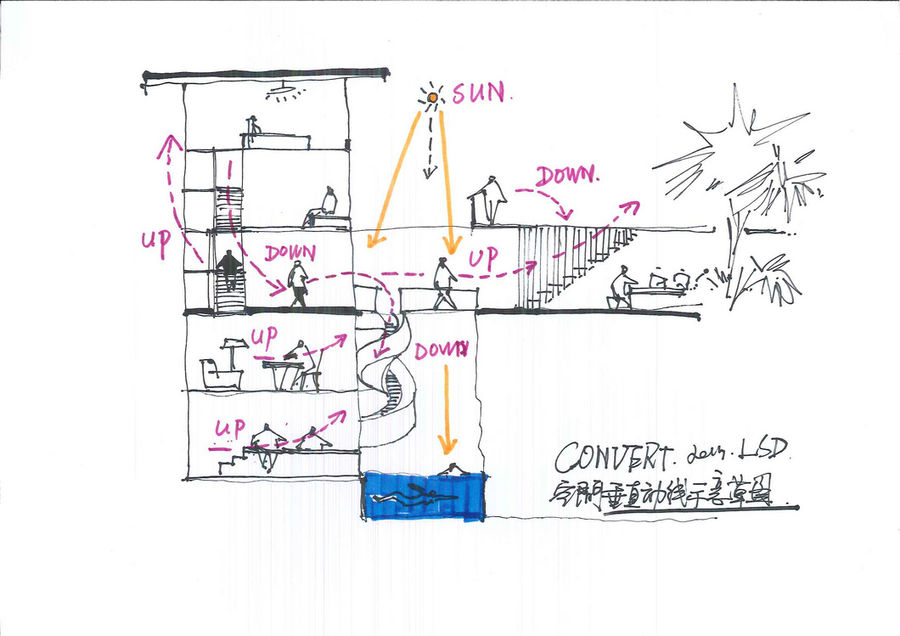 SUN.
DOWN.
UP
UP
DOWN
UP
DOWN
UP
CONVERT. LSD.
空间垂直动线示意草图